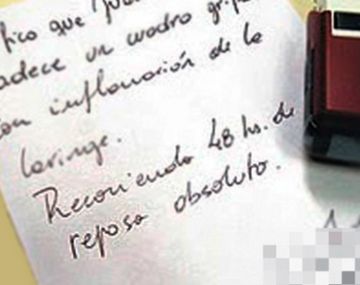 fico que
adece un cuadro grip
on inflamación de la
laringe.
Recomiendo 48 hs. de
reposo absoluto.